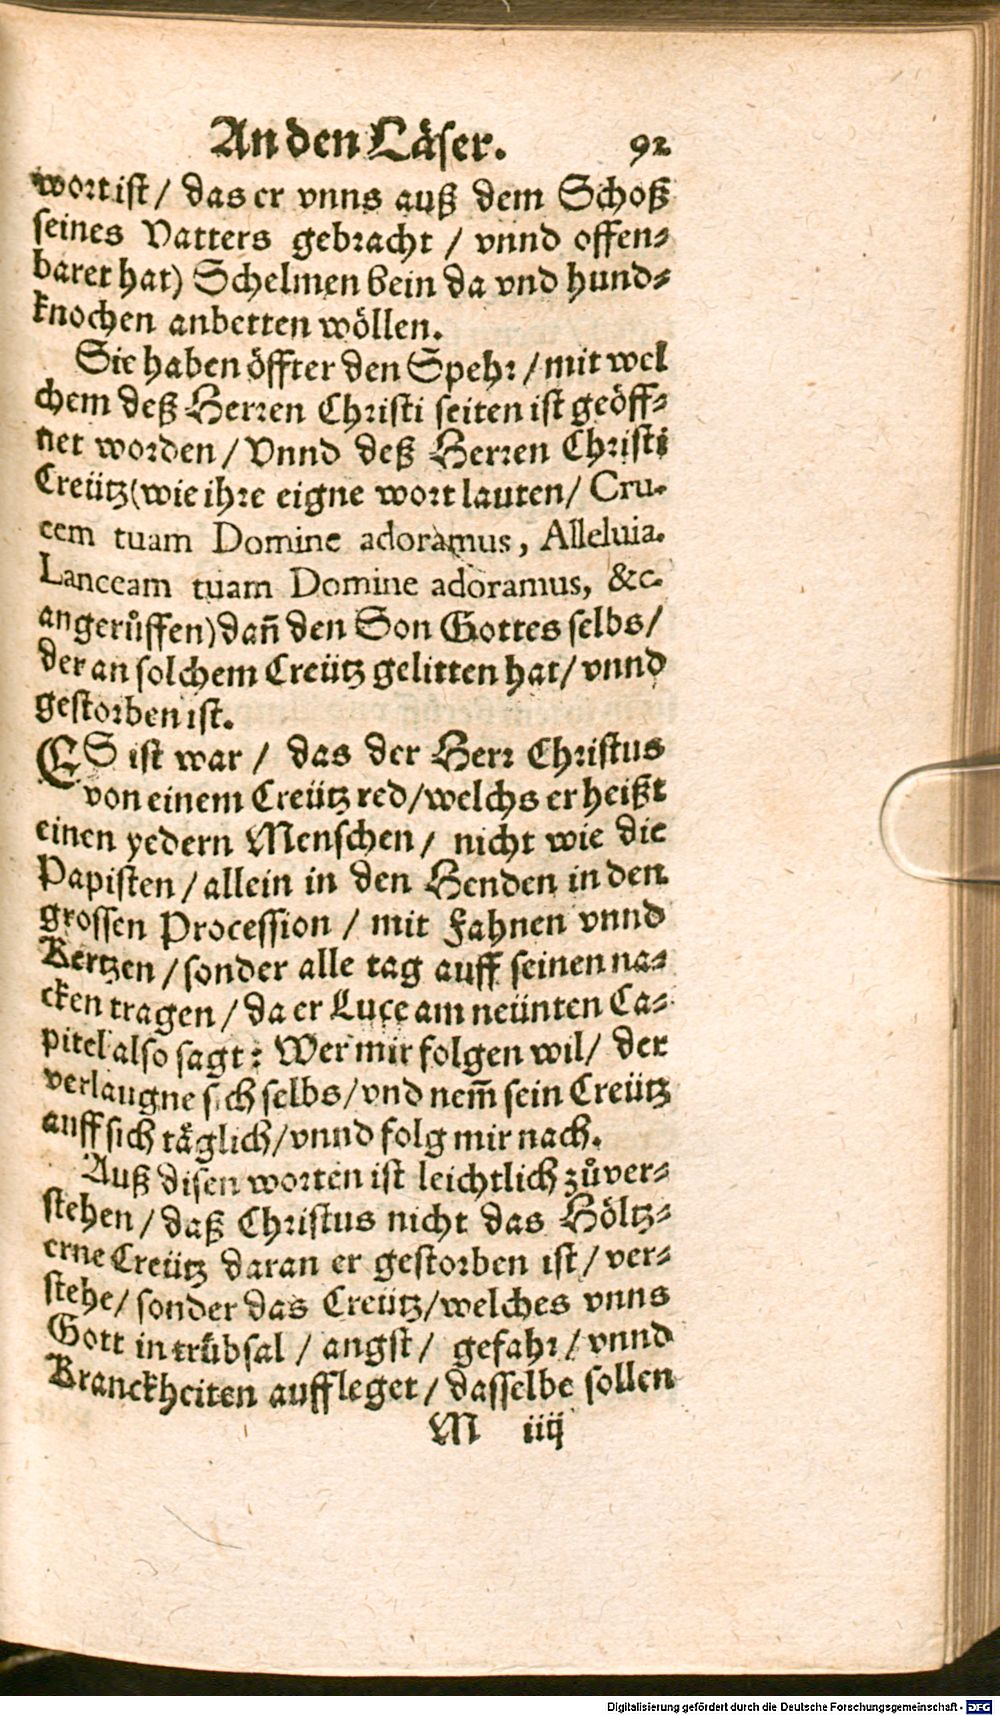 An den Läser. 92
wort ist / das er vnns auß dem Schoß
seines Vatters gebracht / vnnd offen-
baret hat) Schelmen bein da vnd hund-
knochen anbetten wöllen.
Sie haben öffter den Spehr / mit wel
chem deß Herren Christi seiten ist geöff-
net worden / Vnnd deß Herren Christi
Creütz (wie ihre eigne wort lauten / Cru-
cem tuam Domine adoramus, Alleluia.
Lanceam tuam Domine adoramus, &c.
angerůffen) dañ den Son Gottes selbs /
der an solchem Creütz gelitten hat / vnnd
gestorben ist.
ES ist war / das der Herr Christus
von einem Creütz red / welchs er heißt
einen yedern Menschen / nicht wie die
Papisten / allein in den Henden in den
grossen Procession / mit Fahnen vnnd
Kertzen / sonder alle tag auff seinen na-
cken tragen / da er Luce am neünten Ca-
pitel also sagt: Wer mir folgen wil / der
verlaugne sich selbs / vnd nem̃ sein Creütz
auff sich täglich / vnnd folg mir nach.
Auß disen worten ist leichtlich zůver-
stehen / daß Christus nicht das Höltz-
erne Creütz daran er gestorben ist / ver-
stehe / sonder das Creütz / welches vnns
Gott in trübsal / angst / gefahr / vnnd
Kranckheiten auffleget / dasselbe sollen
M iiij
Digitalisierung gefördert durch die Deutsche Forschungsgemeinschaft - DFG